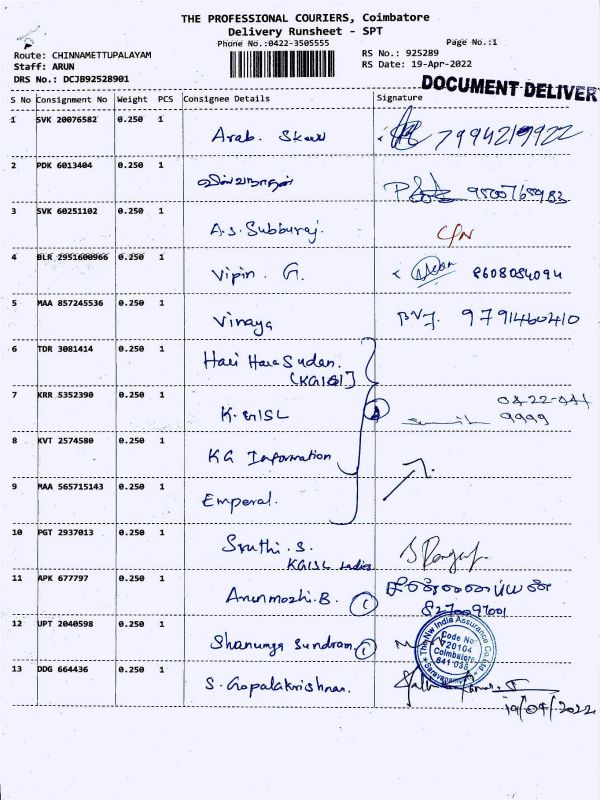 THE PROFESSIONAL COURIERS, Coimbatore
Delivery Runsheet - SPT
Phone No.:0422-3505555
Page No.:1
Route: CHINNAMETTUPALAYAM
RS No.: 925289
Staff: ARUN
RS Date: 19-Apr-2022
DRS No.: DCJB92528901
DOCUMENT DELIVER
S No Consignment No Weight PCS Consignee Details Signature
1 SVK 20076582 0.250 1
Arab. 7994219922
2 PDK 6013404 0.250 1
விஸ்வநாதன் 9500765983
3 SVK 60251102 0.250 1
A.S. Subburaj. C/N
4 BLR 2951600966 0.250 1
Vipin. G. 8608084094
5 MAA 857245536 0.250 1
Vinaya 9791460410
6 TDR 3081414 0.250 1
Hari Hara Sudan.
7 KRR 5352390 0.250 1
9999
8 KVT 2574580 0.250 1
KG Information
9 MAA 565715143 0.250 1
Emperal.
10 PGT 2937013 0.250 1
Sruthi. S.
KGISL Ladies
11 APK 677797 0.250 1
Arunmozhi. B. 1
8270097001
12 UPT 2040598 0.250 1
Shanunga Sundram. 1
The Nw India Assurance Co Ltd
Code No
720104
Coimbatore
641 035
Saravanampatti
13 DDG 664436 0.250 1
S. Gopalakrishnan.
19/04/2022